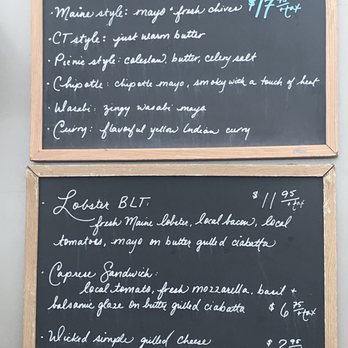 · Maine style: mayo + fresh chives $17 + tax
· CT style: just warm butter
· Picnic style: coleslaw, butter, celery salt
· Chipotle: chipotle mayo, smoky with a touch of heat
· Wasabi: zingy wasabi mayo
· Curry: flavorful yellow Indian curry
· Lobster BLT: $11 95 + tax
fresh Maine lobster, local bacon, local
tomatoes, mayo on butter grilled ciabatta
· Caprese Sandwich:
local tomato, fresh mozzarella, basil +
balsamic glaze on butter grilled ciabatta $6 75 + tax
· Wicked simple grilled cheese $2 95